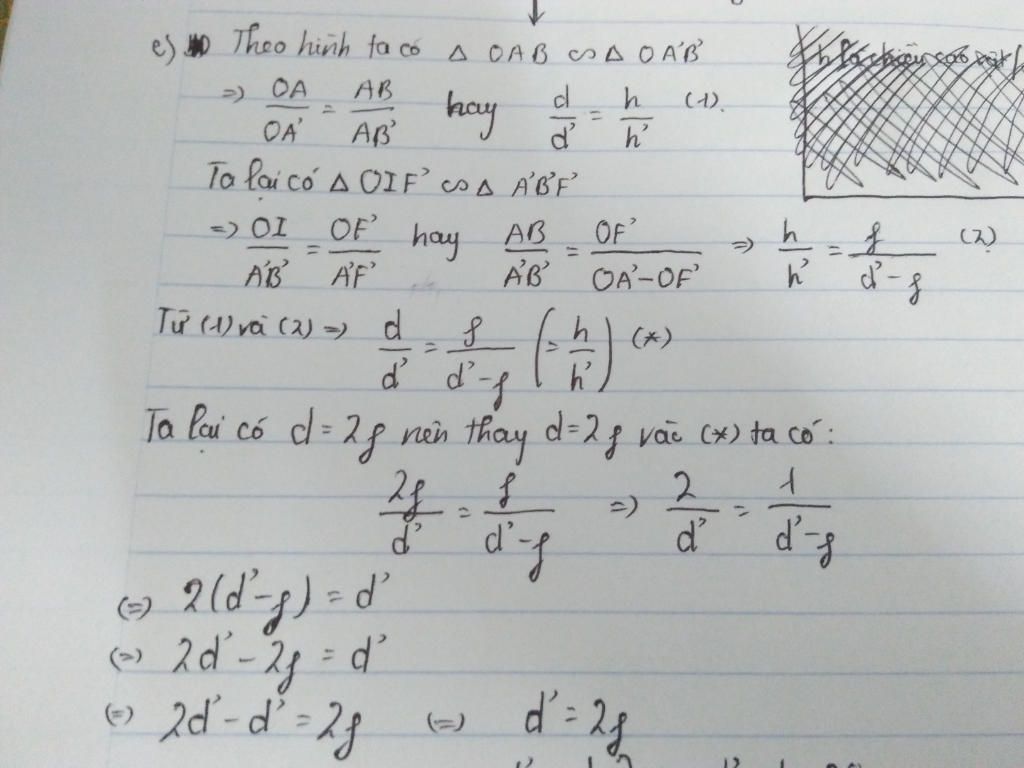 e) Theo hình ta có Δ OAB ∽ Δ OA'B'
=> OA/OA' = AB/AB' hay d/d' = h/h' (1).
Ta lại có Δ OIF' ∽ Δ A'B'F'
=> OI/A'B' = OF'/A'F' hay AB/A'B' = OF'/(OA'-OF') => h/h' = f/(d'-f) (2)
Từ (1) và (2) => d/d' = f/(d'-f) (= h/h') (*)
Ta lại có d = 2f nên thay d = 2f vào (*) ta có:
2f/d' = f/(d'-f) => 2/d' = 1/(d'-f)
(=) 2(d'-f) = d'
(=) 2d' - 2f = d'
(=) 2d' - d' = 2f (=) d' = 2f